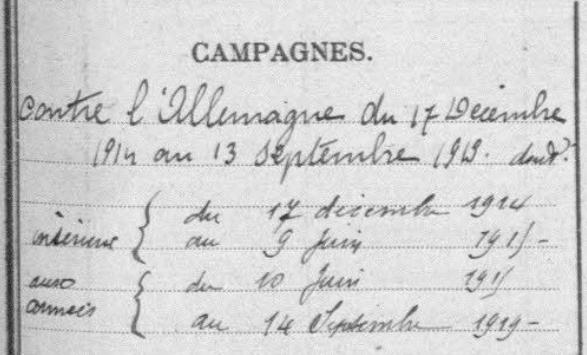 CAMPAGNES.
Contre l'Allemagne du 17 Décembre
1914 au 13 Septembre 1919. dont:
intérieur { du 17 décembre 1914
au 9 Juin 1915 -
aux armées { du 10 Juin 1915
au 14 Septembre 1919 -